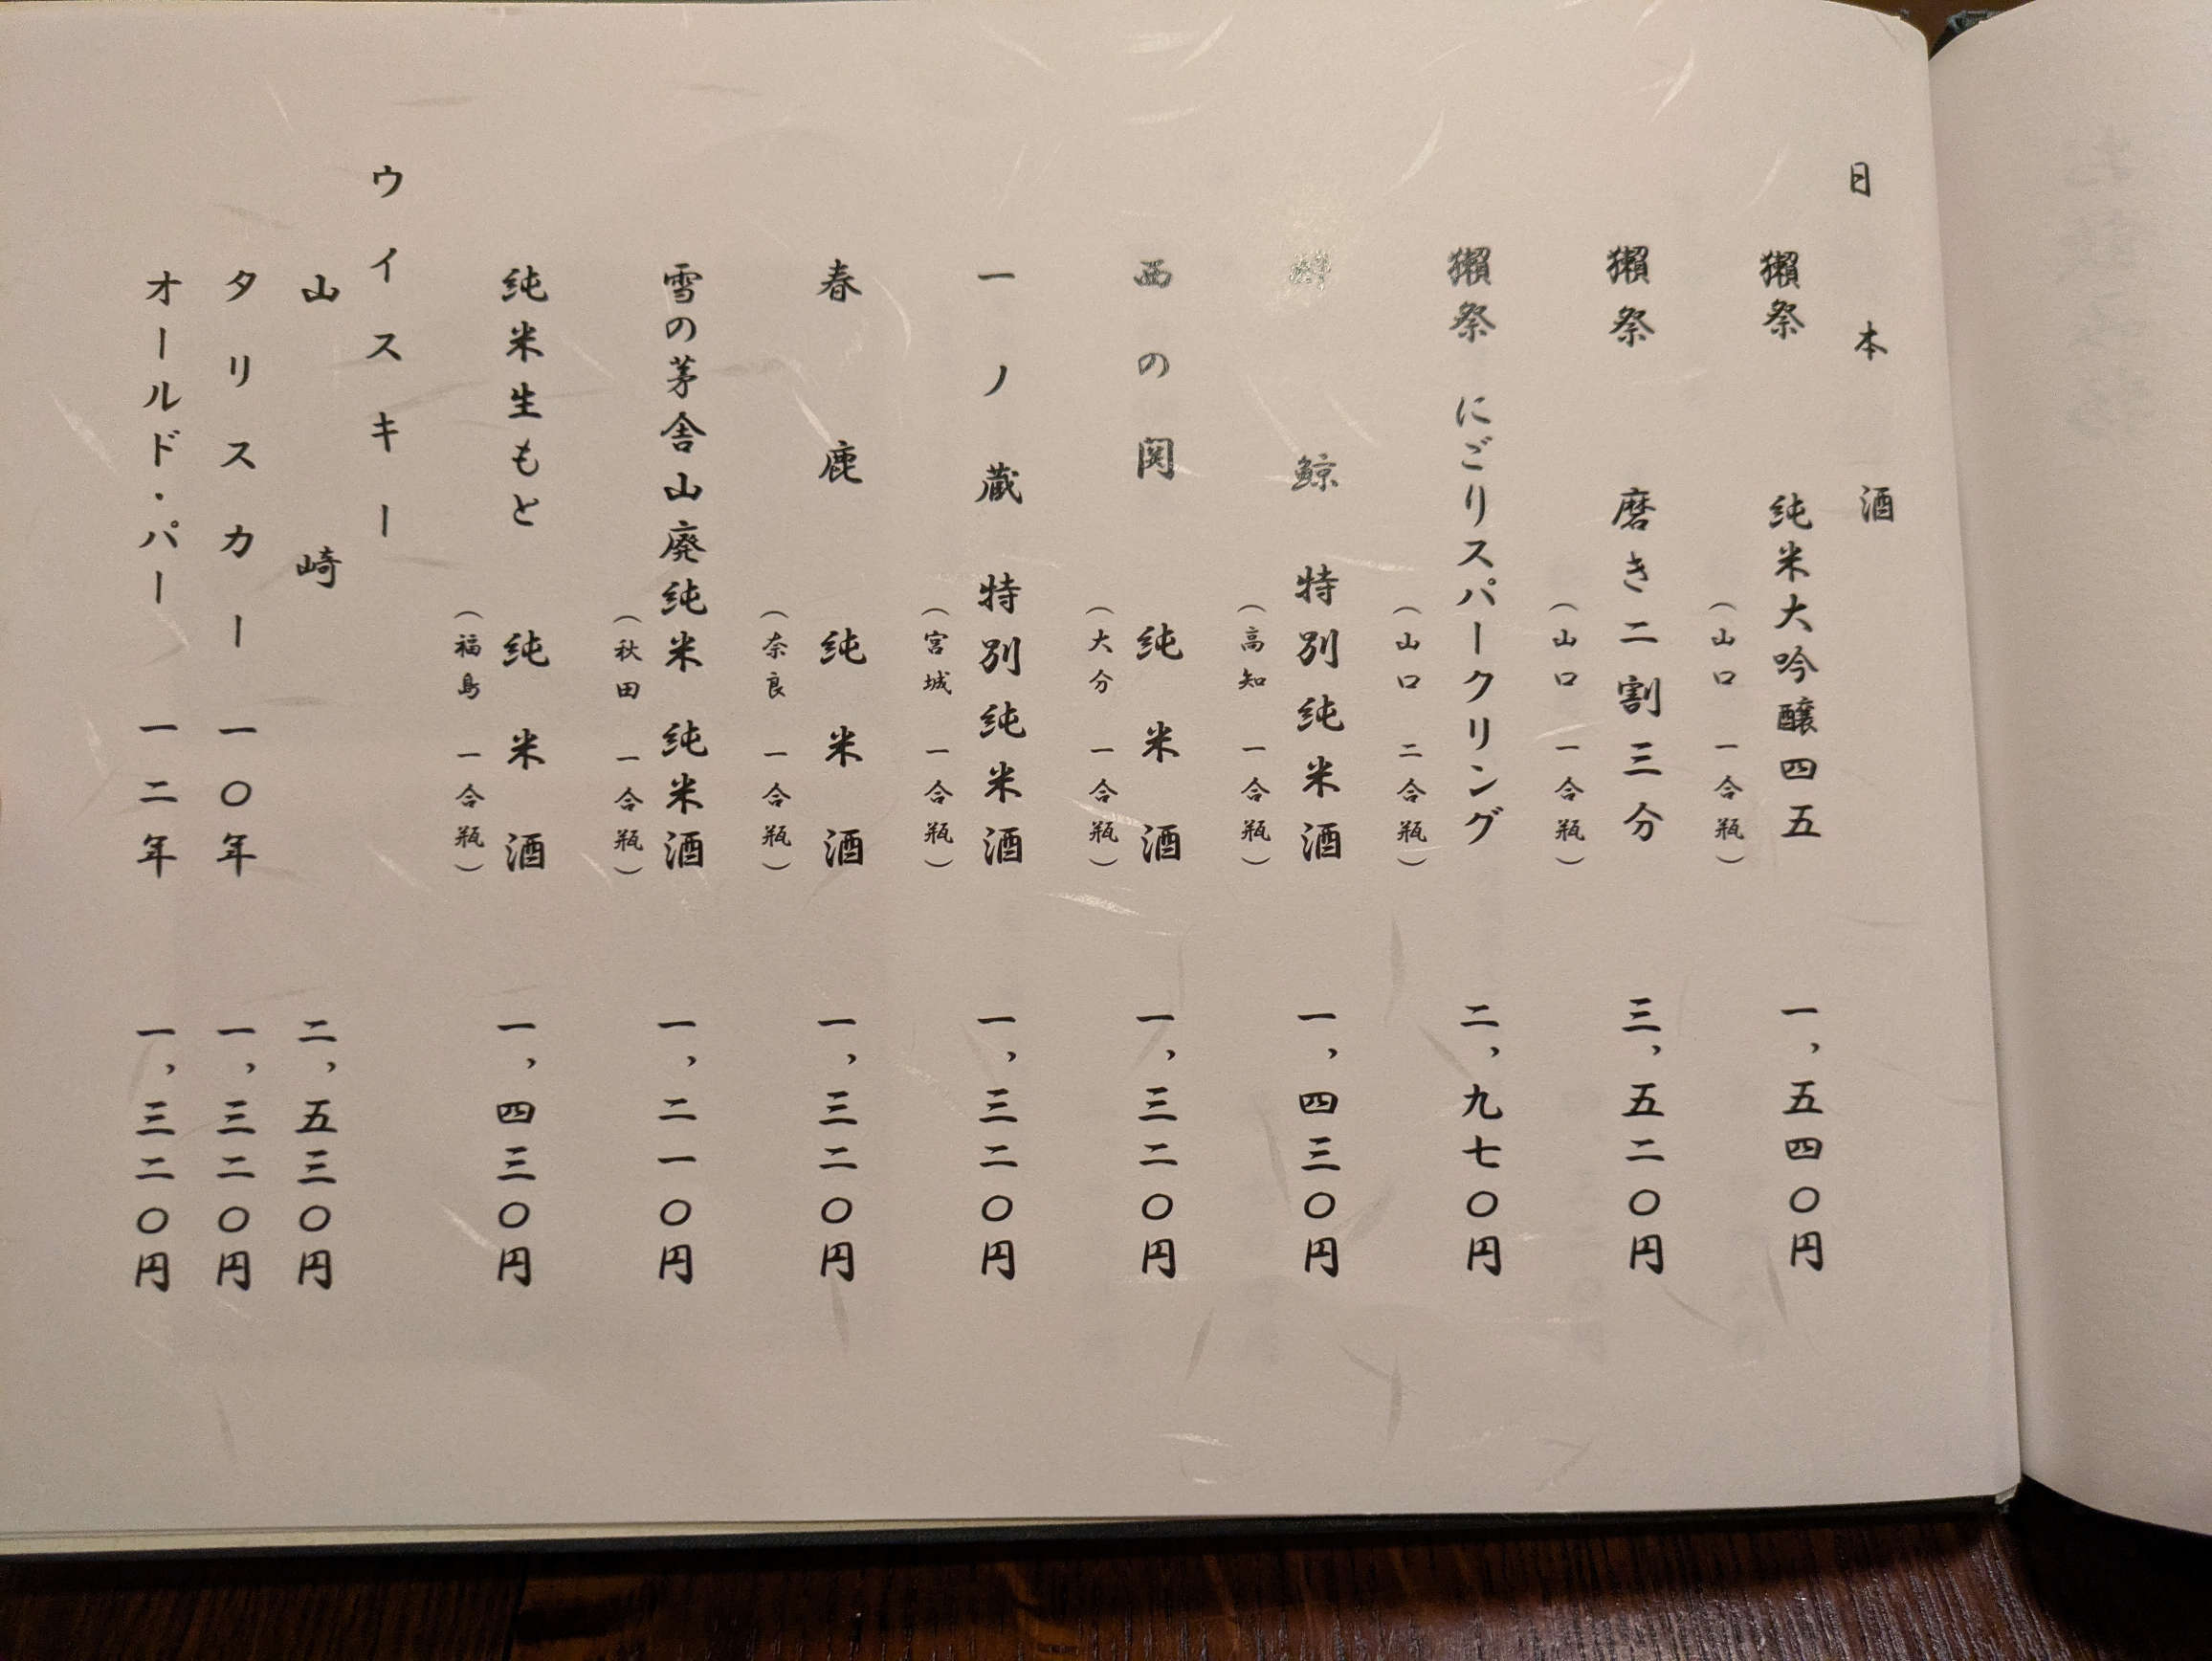 日本酒
獺祭　純米大吟醸四五　一,五四〇円
（山口　一合瓶）
獺祭　磨き二割三分　三,五二〇円
（山口　一合瓶）
獺祭　にごりスパークリング　二,九七〇円
（山口　二合瓶）
酔鯨　特別純米酒　一,四三〇円
（高知　一合瓶）
西の関　純米酒　一,三二〇円
（大分　一合瓶）
一ノ蔵　特別純米酒　一,三二〇円
（宮城　一合瓶）
春鹿　純米酒　一,三二〇円
（奈良　一合瓶）
雪の茅舎山廃純米　純米酒　一,二一〇円
（秋田　一合瓶）
純米生もと　純米酒　一,四三〇円
（福島　一合瓶）
ウイスキー
山崎　二,五三〇円
タリスカー　一〇年　一,三二〇円
オールド・パー　一二年　一,三二〇円